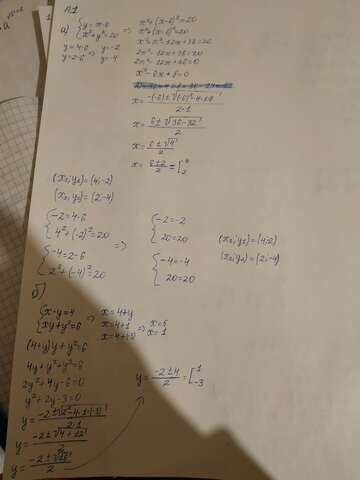 A1
а) { y = x-6
x²+y²=20 => x²+(x-6)²=20
x²+(x-6)²=20
x²+x²-12x+36=20
2x²-12x+36=20
2x²-12x+16=0
x²-6x+8=0
y=4-6 y=-2
y=2-6 y=-4
x = -(-6)±√(-6)²-4·1·8 / 2·1
x = 6±√36-32 / 2
x = 6±√4 / 2
x = 6±2 / 2 = [ 4 2
(x₁,y₁)=(4;-2)
(x₂,y₂)=(2;-4)
{ -2=4-6
4²+(-2)²=20
{ -4=2-6
2²+(-4)²=20
=>
{ -2=-2
20=20
{ -4=-4
20=20
(x₁,y₁)=(4;-2)
(x₂,y₂)=(2;-4)
б)
{ x-y=4
xy+y²=6 => x=4+y
x=4+1
x=4+(-3) => x=5
x=1
(4+y)y+y²=6
4y+y²+y²=6
2y²+4y-6=0
y²+2y-3=0
y = -2±√2²-4·1·(-3) / 2·1
y = -2±√4+12 / 2
y = -2±√16 / 2
y = -2±4 / 2 = [ 1 -3